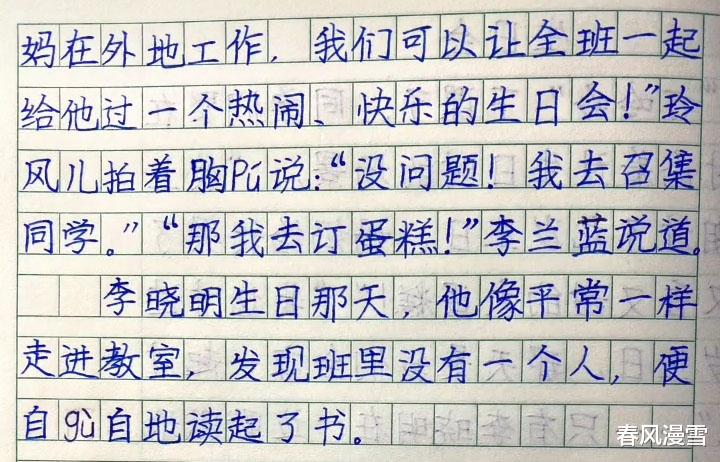 妈在外地工作，我们可以让全班一起
给他过一个热闹、快乐的生日会！”玲
风儿拍着胸Pú说：“没问题！我去召集
同学。”“那我去订蛋糕！”李兰蓝说道。
李晓明生日那天，他像平常一样
走进教室，发现班里没有一个人，便
自gù自地读起了书。
春风漫雪